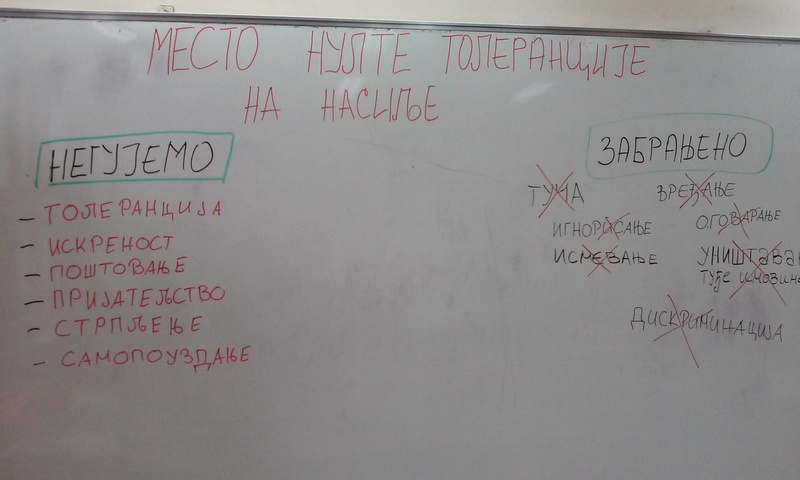 МЕСТО НУЛТЕ ТОЛЕРАНЦИЈЕ
НА НАСИЉЕ
НЕГУЈЕМО
– ТОЛЕРАНЦИЈА
– ИСКРЕНОСТ
– ПОШТОВАЊЕ
– ПРИЈАТЕЉСТВО
– СТРПЉЕЊЕ
– САМОПОУЗДАЊЕ
ЗАБРАЊЕНО
ТУЧА
ВРЕЂАЊЕ
ИГНОРИСАЊЕ
ОГОВАРАЊЕ
ИСМЕВАЊЕ
УНИШТАВА
ТУЂЕ ИМОВИН
ДИСКРИМИНАЦИЈА